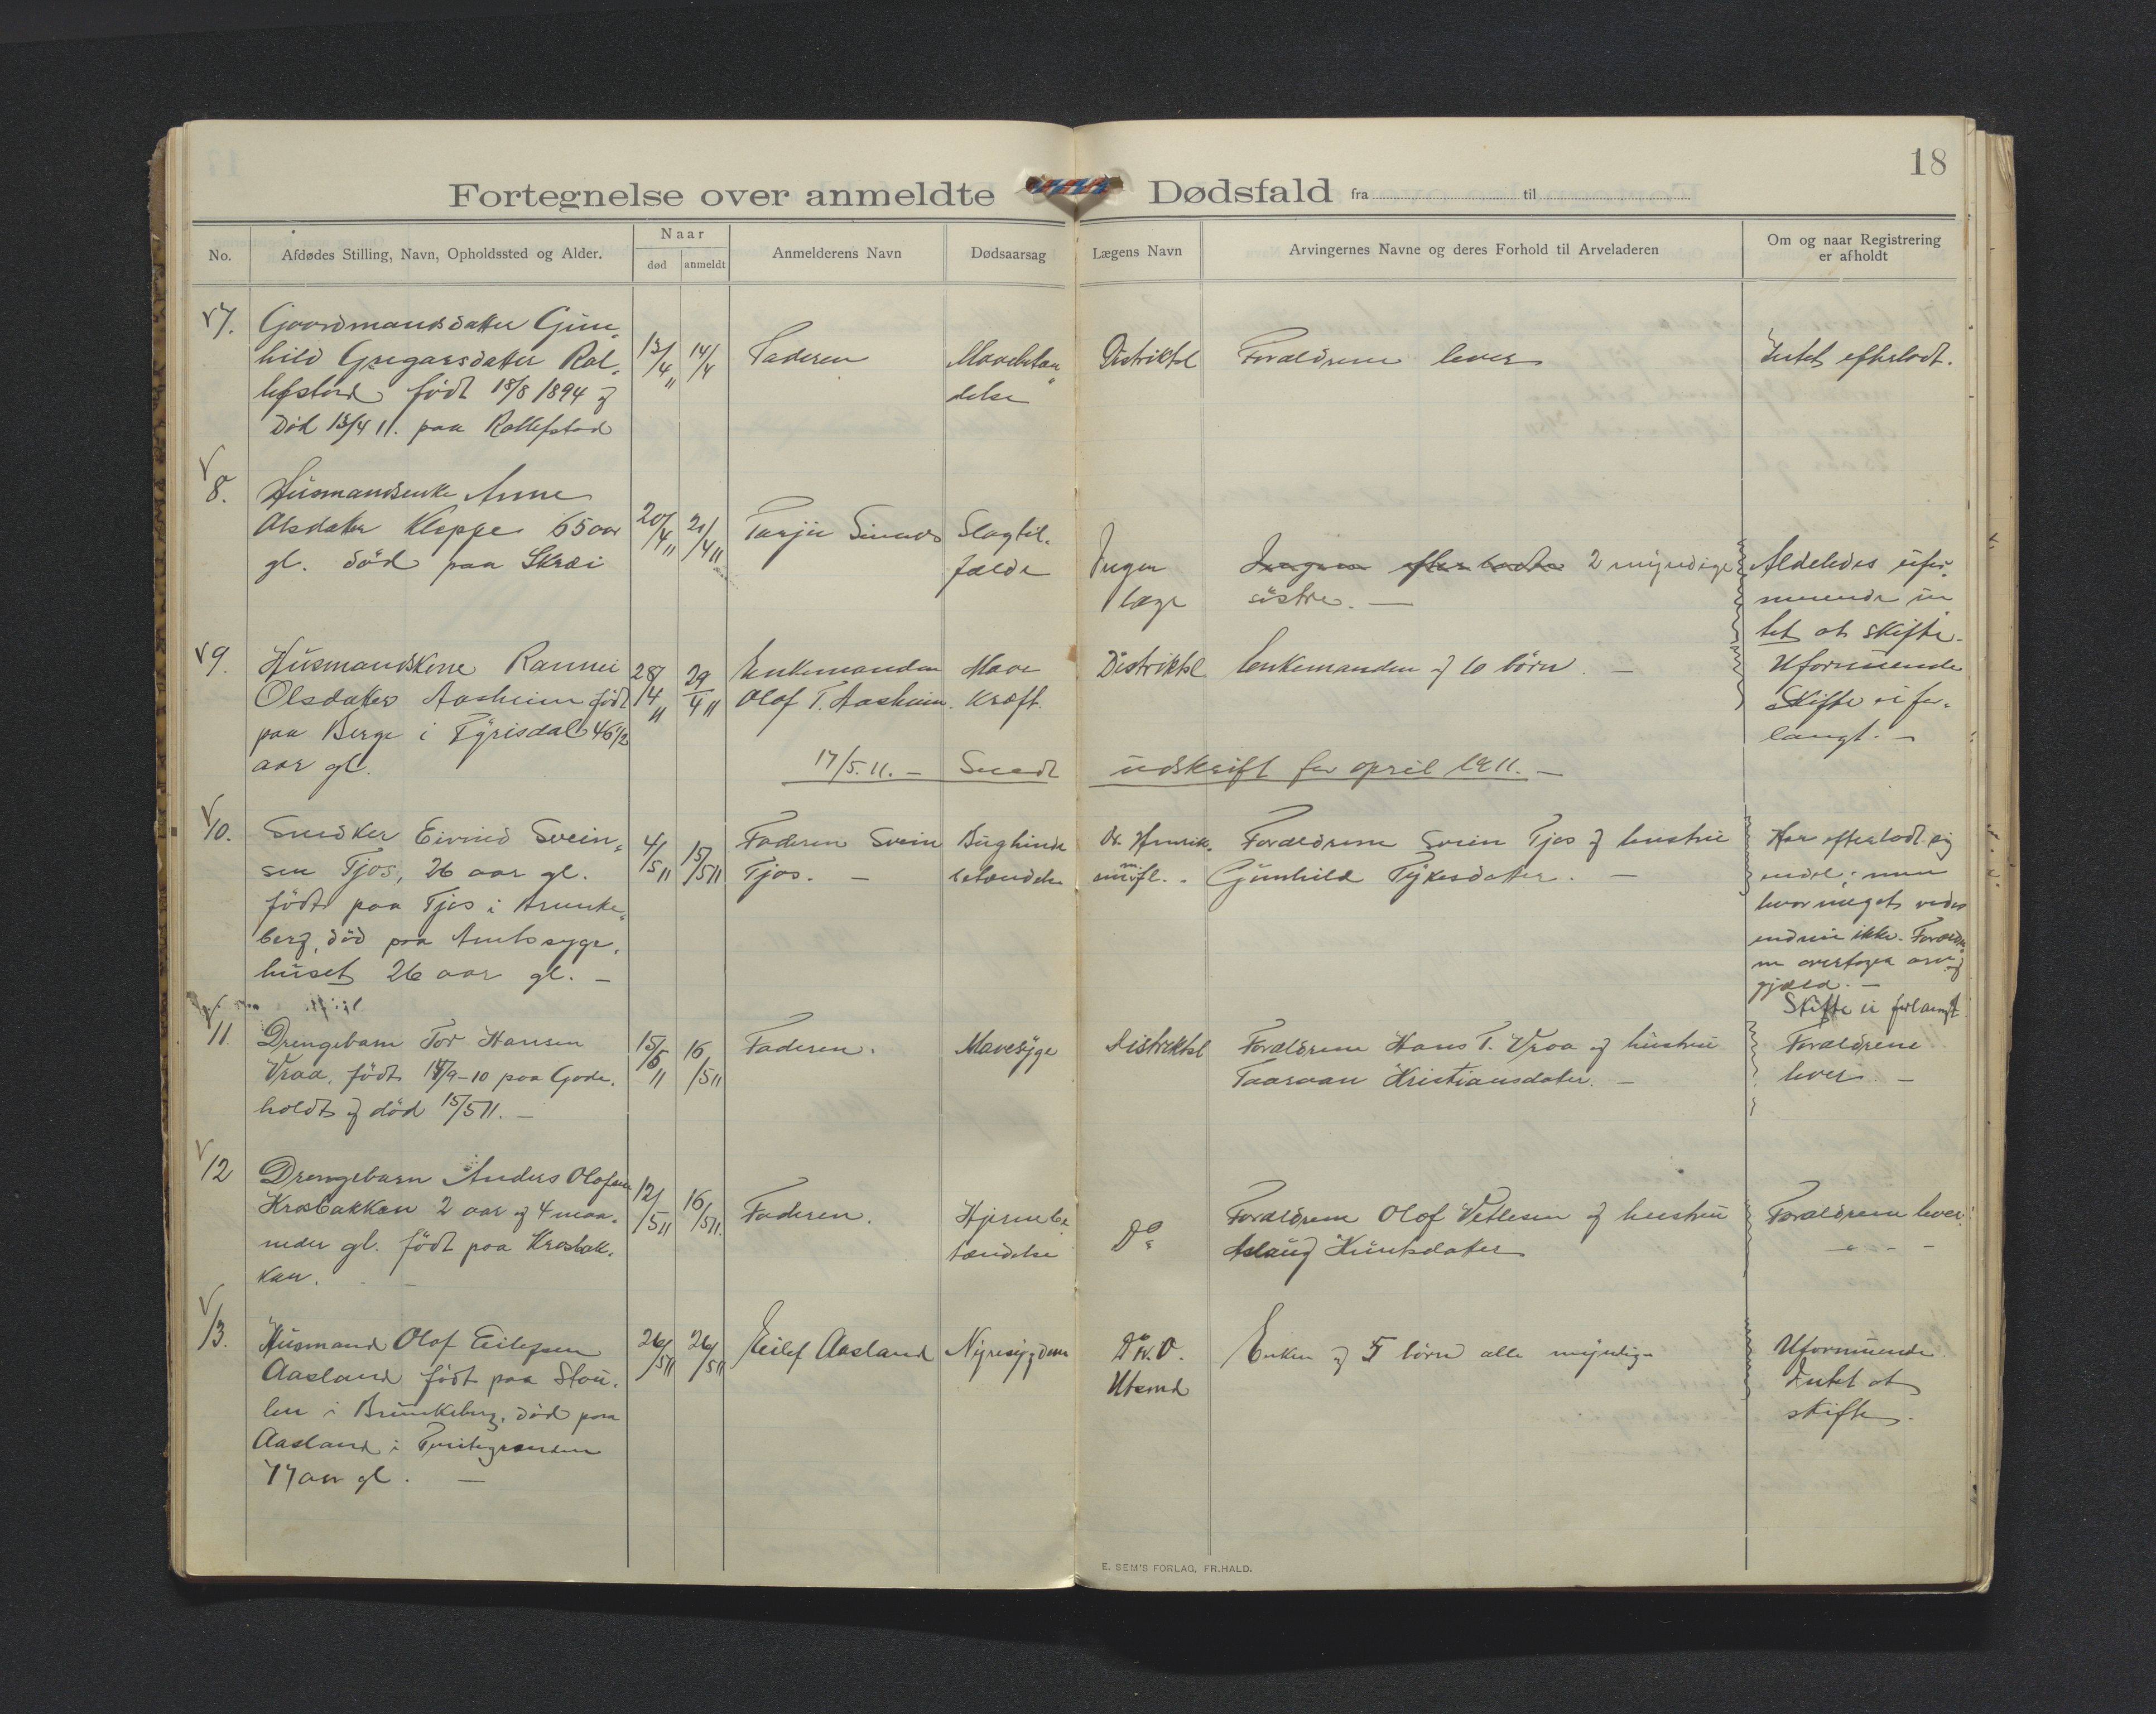 18
Fortegnelse over anmeldte Dødsfald fra til
No.
Afdødes Stilling, Navn, Opholdssted og Alder.
Naar
død
anmeldt
Anmelderens Navn
Dødsaarsag
Lægens Navn
Arvingernes Navne og deres Forhold til Arveladeren
Om og naar Registrering
er afholdt
7.
Gaardmandsdatter Gun
hild Gregarsdatter Rol
lefstad født 18/8 1894 og
død 13/4 11. paa Rollefstad
13/4 11
14/4
Faderen
Mavebetæn
delse
Distriktsl
Forældrene lever
Intet efterladt.
8.
Husmandsenke Anne
Olsdatter Kleppe 65 aar
gl. død paa Skræi
20/4 11
21/4 11
Tarjei
Slagtil-
fælde
Ingen
læge
Ingen efterladte 2 myndige
søstre. —
Aldeles ufor
muende in
tet at skifte.
9.
Husmandskone Rannei
Olsdatter Aasheim født
paa Berge i Fyrisdal 46 1/2
aar gl.
28/4 11
29/4 11
Enkemanden
Olof T. Aasheim.
Mave
kræft.
Distriktsl
Enkemanden og 10 børn. —
Uformuende
Skifte ei for-
langt. —
17/5. 11. — Sendt udskrift for april 1911. —
10.
Snedker Eivind Svein-
sen Tjos, 26 aar gl.
født paa Tjos i Brunke-
berg, død paa Amtssyge-
huset 26 aar gl. —
4/5 11
15/5 11
Faderen Svein
Tjos. —
Bughinde
betændelse
Dr. Henrik-
Forældrene Svein Tjos og hustru
Gunhild Tykesdatter. —
Har efterladt sig
endel; men
hvor meget vides
endnu ikke. Forældre
ne overtager arv og
gjæld. —
Skifte ei forlangt
11.
Drengebarn Tor Hansen
Vraa, født 14/9-10 paa Gode-
holdt og død 15/5 11. —
15/5 11
16/5 11
Faderen.
Mavesyge
Distriktsl
Forældrene Hans T. Vraa og hustru
Taaraan Kristiansdatter. —
Forældrene
lever. —
12
Drengebarn Anders Olofsen
Krosbakken 2 aar og 4 maa-
neder gl. født paa Krosbak-
ken. —
12/5 11
16/5 11.
Faderen.
Hjernebe
tændelse
Do
Forældrene Olof Vetlesen og hustru
Aslaug Knutsdatter
Forældrene lever.
13.
Husmand Olof Eilefsen
Aasland født paa Støu-
len i Brunkeberg, død paa
Aasland i
77 aar gl. —
26/5 11
26/5 11
Eilef Aasland
Nyresygdom
Enken og 5 børn alle myndige
Uformuende
Intet at
skifte.
E. SEM'S FORLAG, FR.HALD.